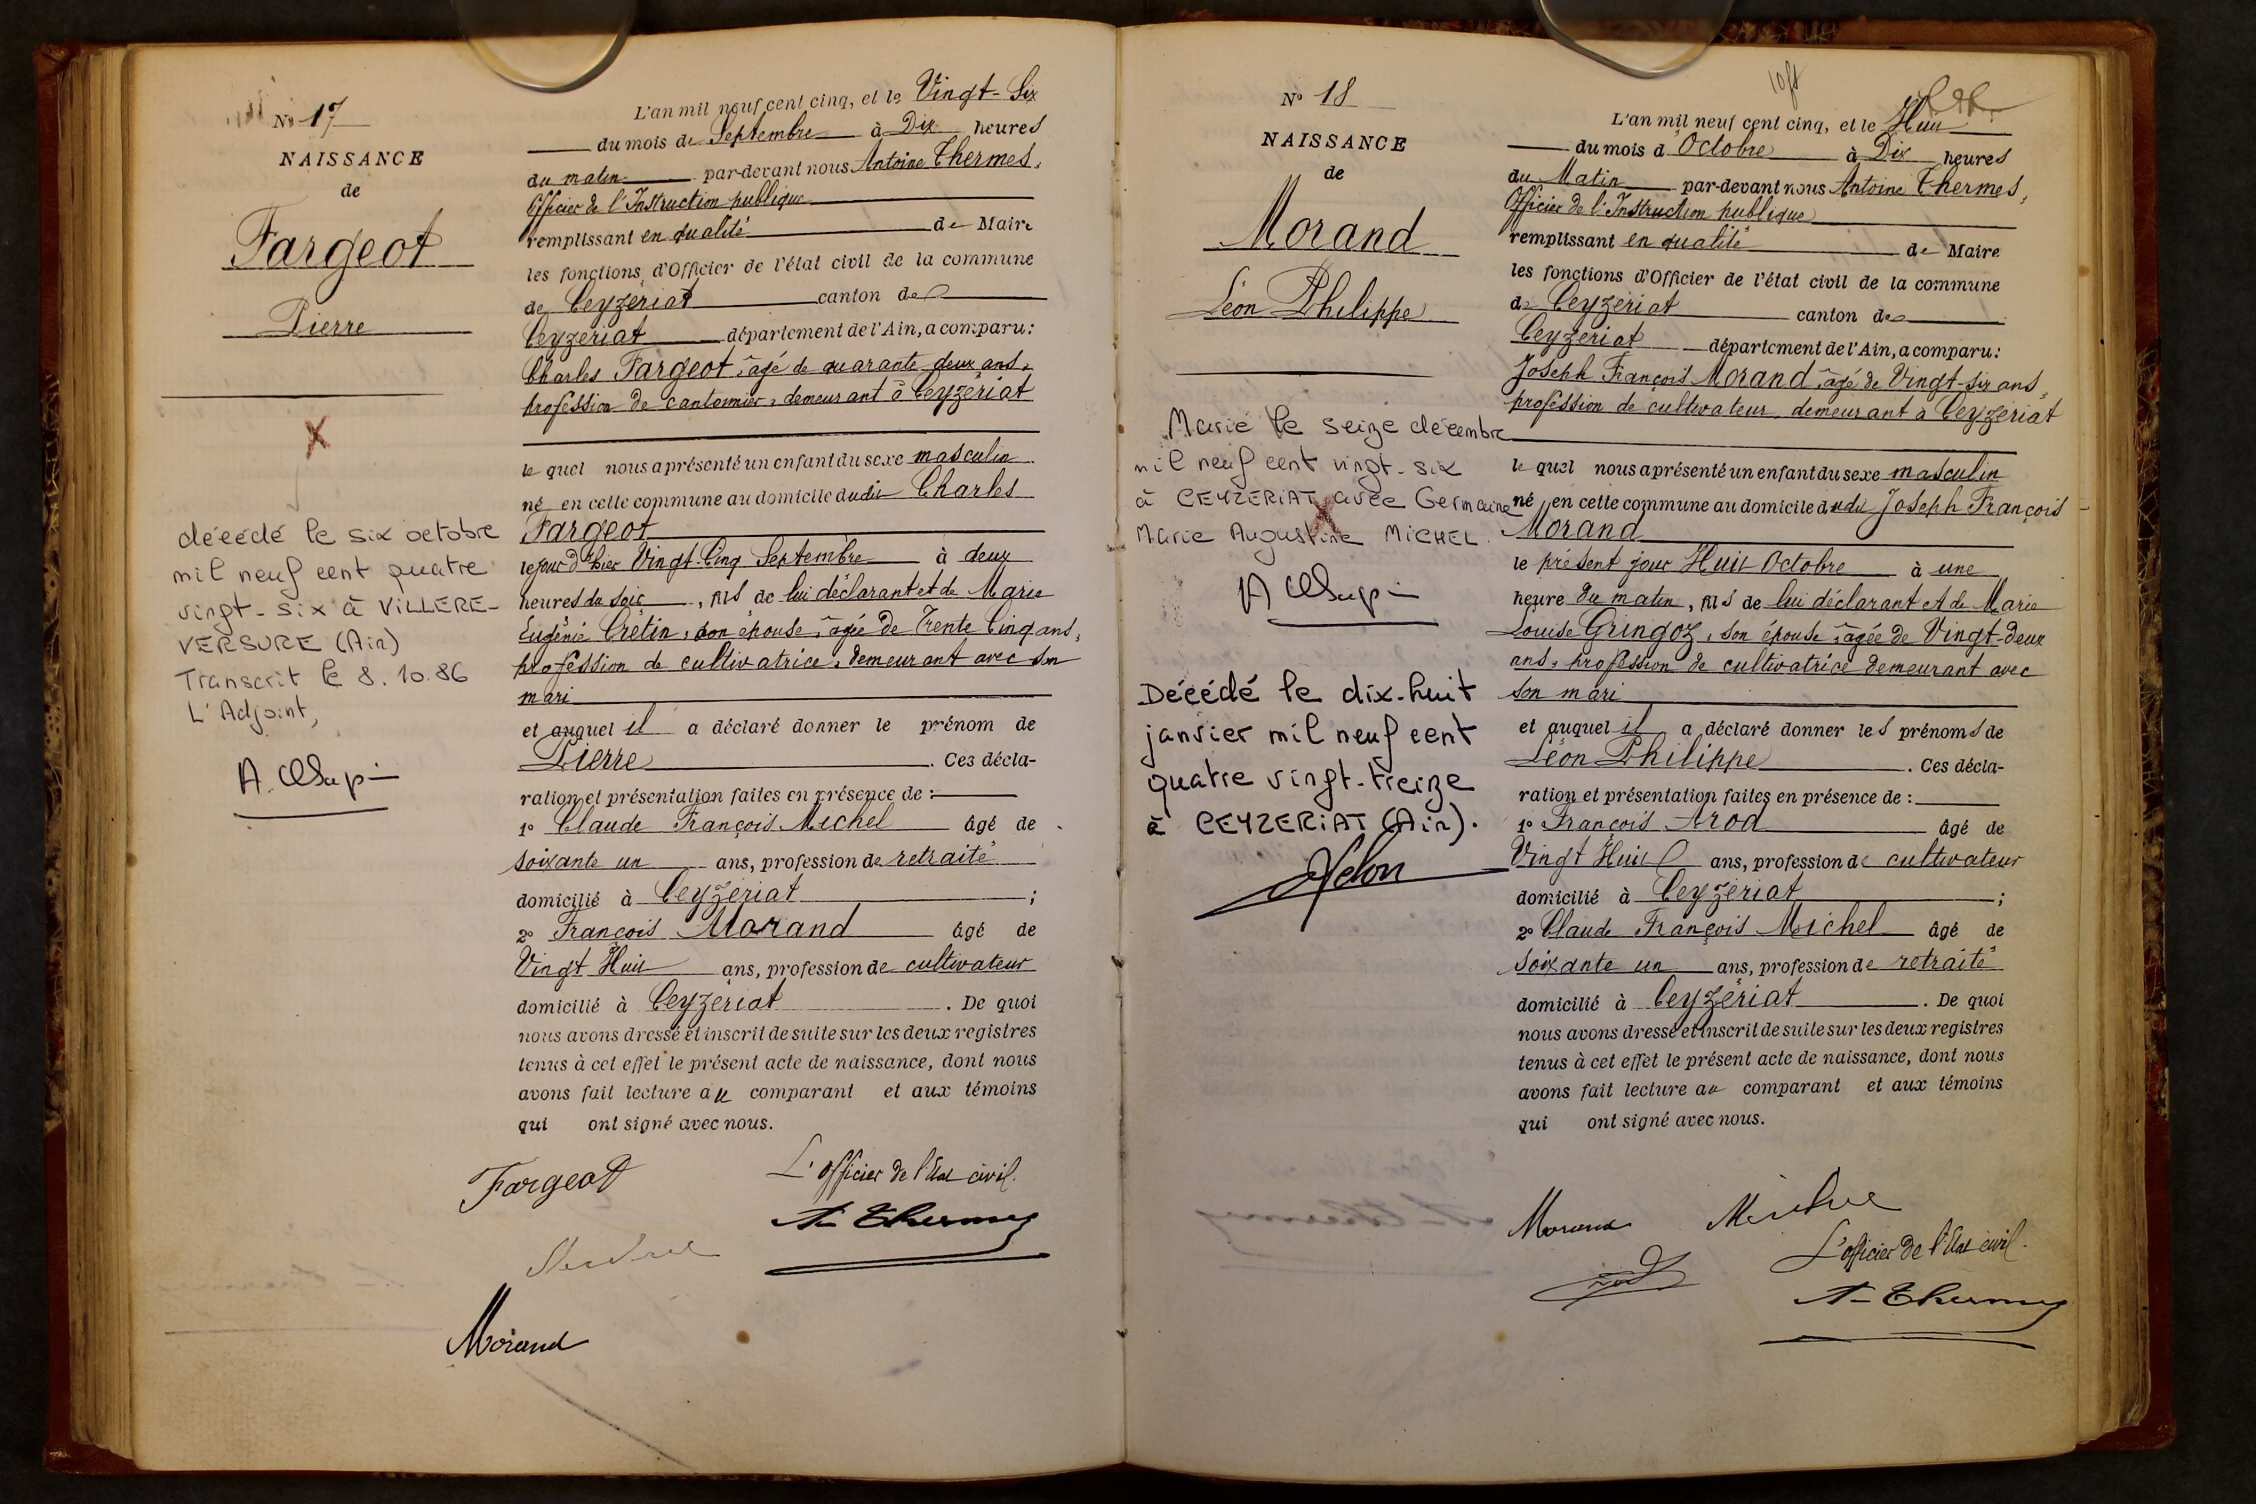 N° 17
NAISSANCE
de
Fargeot
Pierre
X
décédé le six octobre
mil neuf cent quatre
vingt-six à VILLERE-
VERSURE (Ain)
Transcrit le 8.10.86
L'Adjoint,
L'an mil neuf cent cinq, et le Vingt-Six
du mois de Septembre à Dix heures
du matin par-devant nous Antoine Thermes,
Officier de l'Instruction publique
remplissant en qualité de Maire
les fonctions d'Officier de l'état civil de la commune
de Ceyzériat canton de
Ceyzériat département de l'Ain, a comparu:
Charles Fargeot, âgé de quarante deux ans,
profession de cantonnier, demeurant à Ceyzériat
le quel nous a présenté un enfant du sexe masculin
né en cette commune au domicile dudit Charles
Fargeot
le jour d'hier Vingt-Cinq Septembre à deux
heures du soir, fils de lui déclarant et de Marie
Eugénie Cretin, son épouse, âgée de Trente Cinq ans,
profession de cultivatrice, demeurant avec son
mari
et auquel il a déclaré donner le prénom de
Pierre. Ces décla-
ration et présentation faites en présence de :
1° Claude François Michel âgé de
soixante un ans, profession de retraité
domicilié à Ceyzériat ;
2° François Morand âgé de
Vingt Huit ans, profession de cultivateur
domicilié à Ceyzériat. De quoi
nous avons dressé et inscrit de suite sur les deux registres
tenus à cet effet le présent acte de naissance, dont nous
avons fait lecture au comparant et aux témoins
qui ont signé avec nous.
Fargeot
L'officier de l'Etat civil.
A. Thermes
Morand
N° 18
NAISSANCE
de
Morand
Léon Philippe
Marié le seize décembre
mil neuf cent vingt-six
à CEYZERIAT avec Germaine
Marie Augustine MICHEL.
X
Décédé le dix-huit
janvier mil neuf cent
quatre vingt-treize
à CEYZERIAT (Ain).
L'an mil neuf cent cinq, et le Huit
du mois d'Octobre à Dix heures
du Matin par-devant nous Antoine Thermes,
Officier de l'Instruction publique
remplissant en qualité de Maire
les fonctions d'Officier de l'état civil de la commune
de Ceyzériat canton de
Ceyzériat département de l'Ain, a comparu:
Joseph François Morand, âgé de Vingt-six ans,
profession de cultivateur demeurant à Ceyzériat
le quel nous a présenté un enfant du sexe masculin
né en cette commune au domicile dudit Joseph François
Morand
le présent jour Huit Octobre à une
heure du matin, fils de lui déclarant et de Marie
Louise Gringoz, son épouse, âgée de Vingt-deux
ans, profession de cultivatrice demeurant avec
son mari
et auquel il a déclaré donner les prénoms de
Léon Philippe. Ces décla-
ration et présentation faites en présence de :
1° François Arod âgé de
Vingt Huit ans, profession de cultivateur
domicilié à Ceyzériat ;
2° Claude François Michel âgé de
soixante un ans, profession de retraité
domicilié à Ceyzériat. De quoi
nous avons dressé et inscrit de suite sur les deux registres
tenus à cet effet le présent acte de naissance, dont nous
avons fait lecture au comparant et aux témoins
qui ont signé avec nous.
Morand
L'officier de l'Etat civil.
A. Thermes